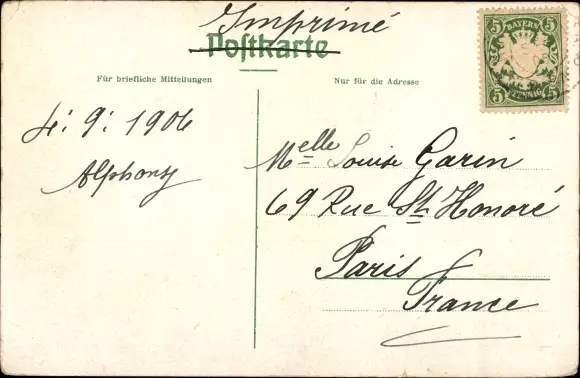 Imprimé
Postkarte
Für briefliche Mitteilungen
Nur für die Adresse
5 BAYERN 5
5 PFENNIG 5
4: 9: 1906
Alphonsy
Melle Louise Garin
69 Rue St Honoré
Paris
France